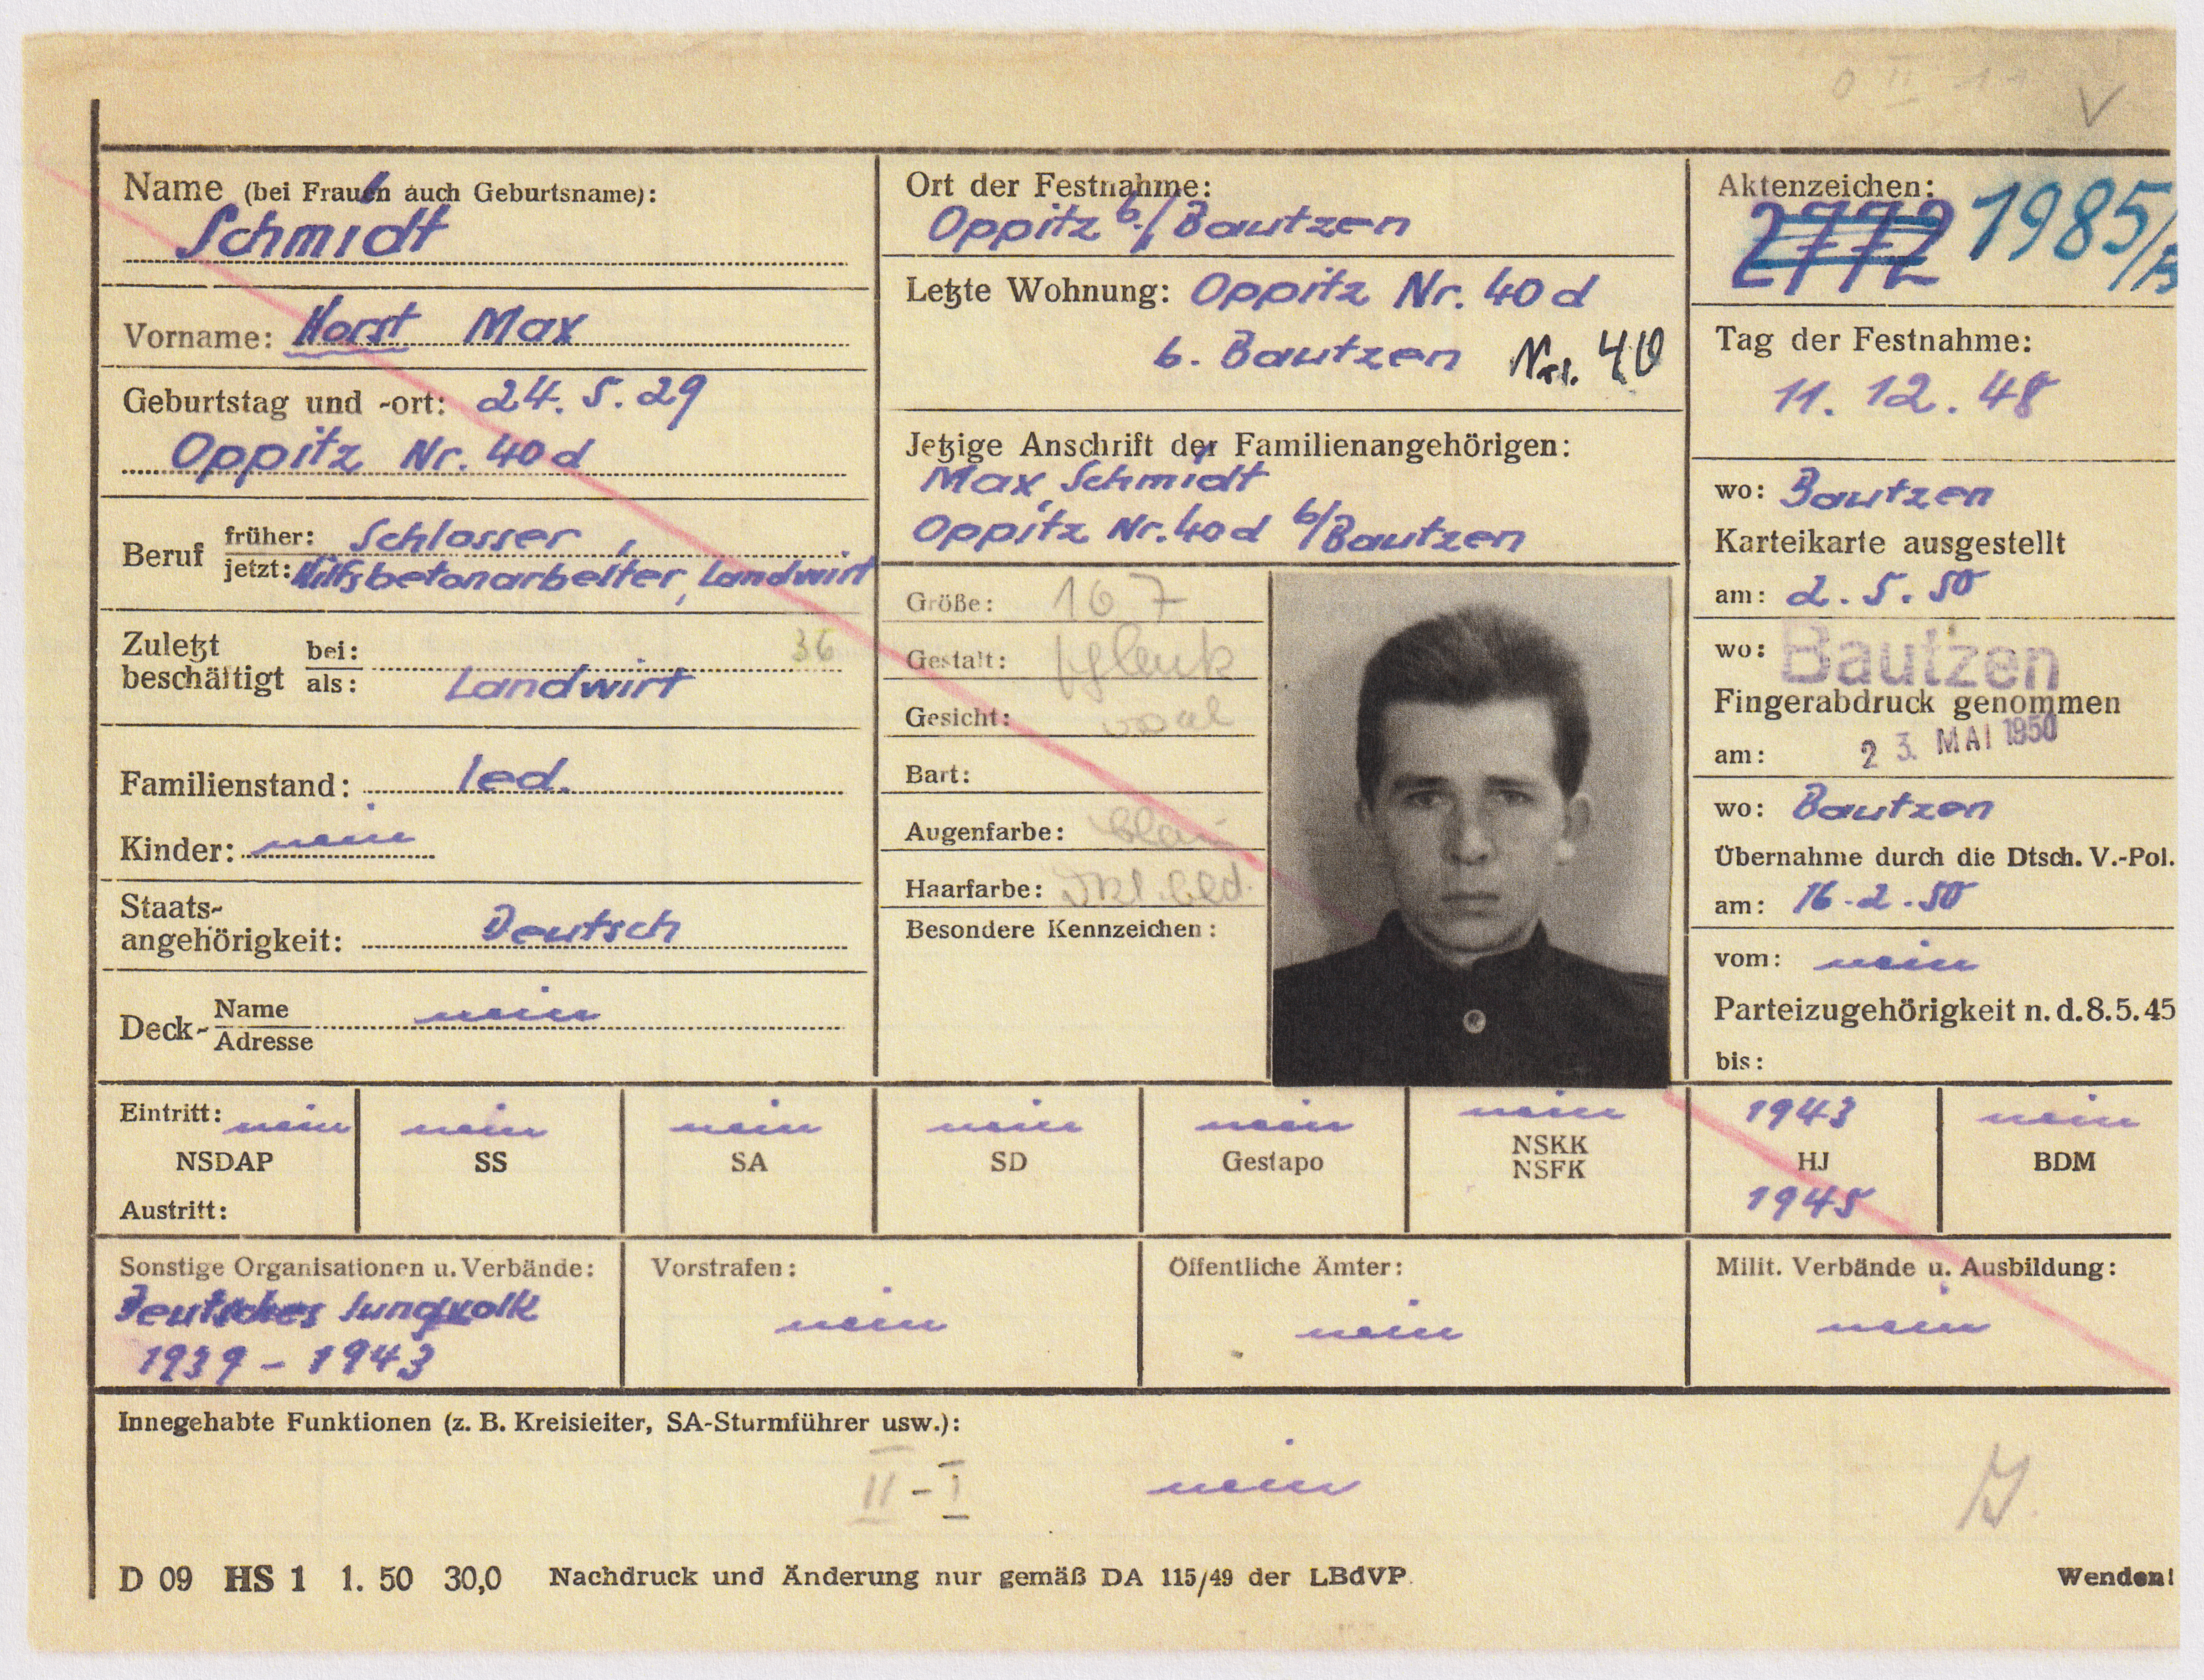 V
Name (bei Frauen auch Geburtsname):
Schmidt
Vorname: Horst Max
Geburtstag und -ort: 24. 5. 29
Oppitz Nr. 40 d
Beruf früher: Schlosser,
jetzt: Hilfsbetonarbeiter, Landwirt
Zuletzt beschäftigt bei: 36
als: Landwirt
Familienstand: led.
Kinder: nein
Staats-
angehörigkeit: Deutsch
Deck- Name nein
Adresse
Ort der Festnahme:
Oppitz b./Bautzen
Letzte Wohnung: Oppitz Nr. 40 d
b. Bautzen Nr. 40
Jetzige Anschrift der Familienangehörigen:
Max Schmidt
Oppitz Nr. 40 d b/Bautzen
Größe: 167
Gestalt: schlank
Gesicht: oval
Bart:
Augenfarbe: blau
Haarfarbe: dkl. bld.
Besondere Kennzeichen:
Aktenzeichen:
2772 1985/B
Tag der Festnahme:
11. 12. 48
wo: Bautzen
Karteikarte ausgestellt
am: 2. 5. 50
wo: Bautzen
Fingerabdruck genommen
am: 23. MAI 1950
wo: Bautzen
Übernahme durch die Dtsch. V.-Pol.
am: 16. 2. 50
vom: nein
Parteizugehörigkeit n. d. 8. 5. 45
bis:
Eintritt: nein nein nein nein nein nein 1943 nein
NSDAP SS SA SD Gestapo NSKK NSFK HJ BDM
Austritt: 1945
Sonstige Organisationen u. Verbände: Vorstrafen: Öffentliche Ämter: Milit. Verbände u. Ausbildung:
Deutsches Jungvolk nein nein nein
1939 - 1943
Innegehabte Funktionen (z. B. Kreisleiter, SA-Sturmführer usw.):
II - I nein
D 09 HS 1 1. 50 30,0 Nachdruck und Änderung nur gemäß DA 115/49 der LBdVP. Wenden!